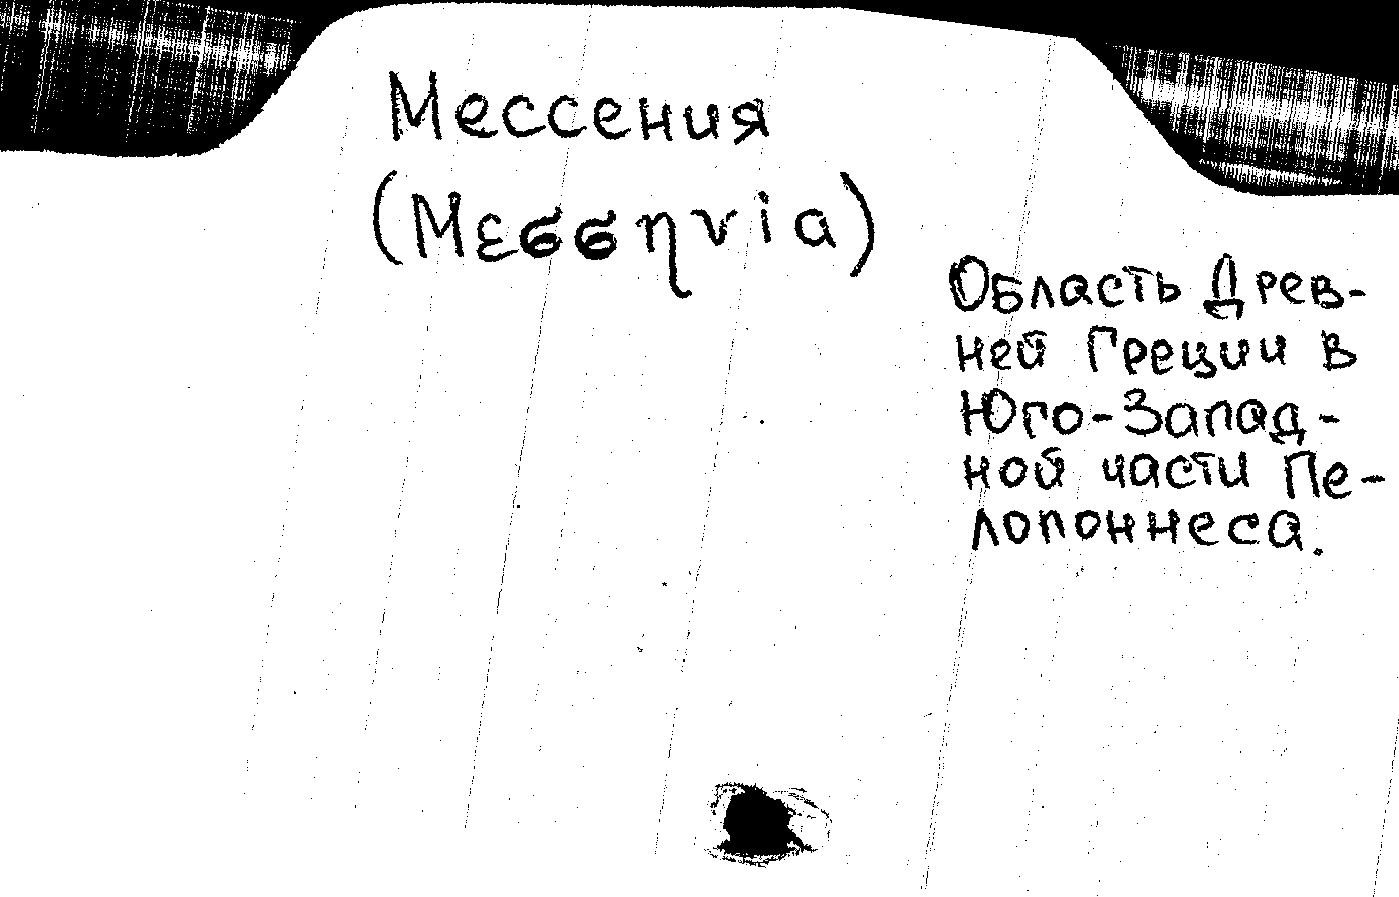 Мессения
(Μεσσηνία)
Область Древ-
ней Греции в
Юго-Запад-
ной части Пе-
лопоннеса.